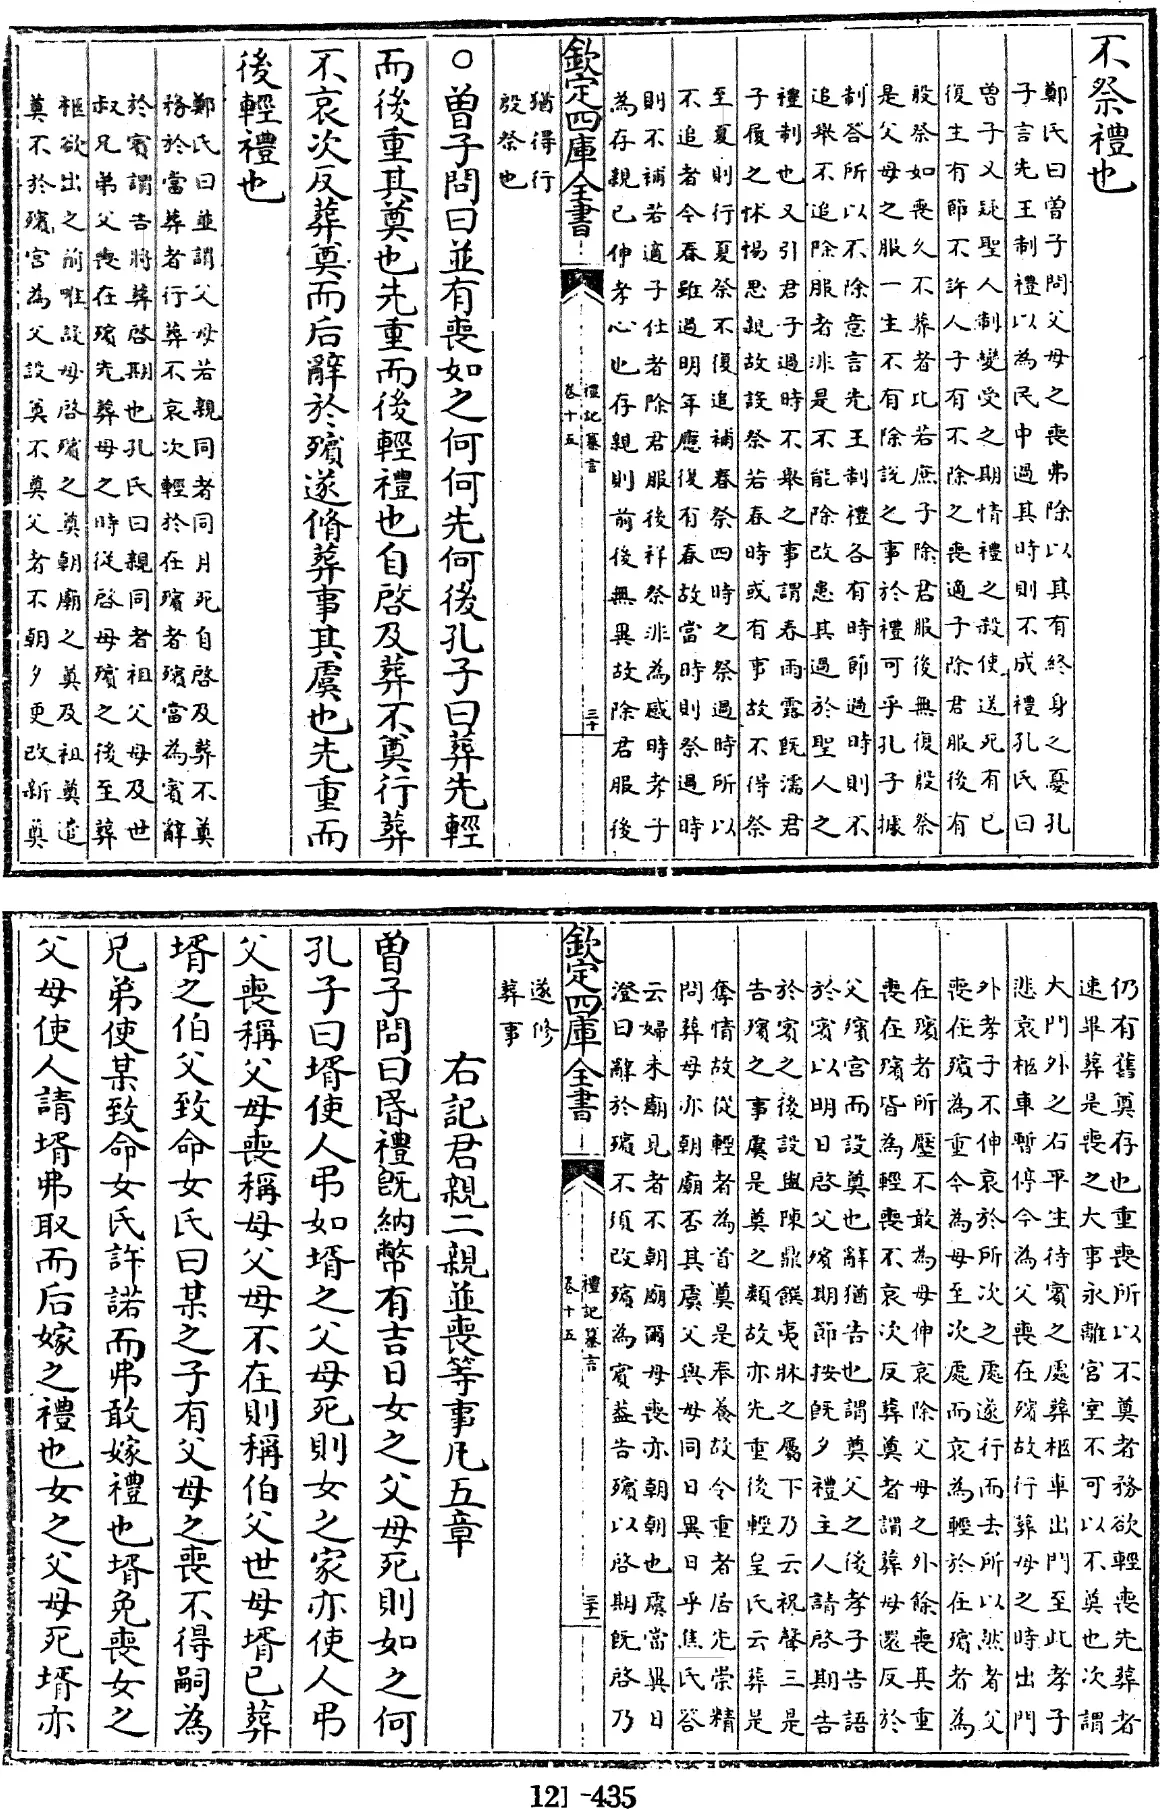 不祭禮也
鄭氏曰曽子問父母之喪弗除以其有終身之憂孔
子言先王制禮以為民中過其時則不成禮孔氏曰
曽子又疑聖人制變受之期情禮之殺使送死有已
復生有節不許人子有不除之喪適子除君服後有
殷祭如喪久不葬者比若庶子除君服後無復殷祭
是父母之服一主不有除說之事於禮可乎孔子據
制答所以不除意言先王制禮各有時節過時則不
追舉不追除服者非是不能除改患其過於聖人之
禮制也又引君子過時不舉之事謂春雨露旣濡君
子履之怵惕思親故設祭若春時或有事故不得祭
至夏則行夏祭不復追補春祭四時之祭過時所以
不追者今春雖過明年應復有春故當時則祭過時
則不補若適子仕者除君服後祥祭非為感時孝子
為存親已伸孝心也存親則前後無異故除君服後
欽定四庫全書
禮記纂言
卷十五
三十
猶得行
殷祭也
○曽子問曰並有喪如之何何先何後孔子曰葬先輕
而後重其奠也先重而後輕禮也自啓及葬不奠行葬
不哀次反葬奠而后辭於殯遂脩葬事其虞也先重而
後輕禮也
鄭氏曰並謂父母若親同者同月死自啓及葬不奠
務於當葬者行葬不哀次輕於在殯者殯當為賓辭
於賓謂告將葬啓期也孔氏曰親同者祖父母及世
叔兄弟父喪在殯先葬母之時從啓母殯之後至葬
柩欲出之前唯設母啓殯之奠朝廟之奠及祖奠遣
奠不於殯宮為父設奠不奠父者不朝夕更改新奠
仍有舊奠存也重喪所以不奠者務欲輕喪先葬者
速畢葬是喪之大事永離宮室不可以不奠也次謂
大門外之右平生待賓之處葬柩車出門至此孝子
悲哀柩車暫停今為父喪在殯故行葬母之時出門
外孝子不伸哀於所次之處遂行而去所以然者父
喪在殯為重今為母至次處而哀為輕於在殯者為
在殯者所壓不敢為母伸哀除父母之外餘喪其重
喪在殯皆為輕喪不哀次反葬奠者謂葬母還反於
父殯宮而設奠也辭猶告也謂奠父之後孝子告語
於賓以明日啓父殯期節按旣夕禮主人請啓期告
於賓之後設盥陳鼎饌夷牀之屬下乃云祝聲三是
告殯之事虞是奠之類故亦先重後輕皇氏云葬是
奪情故從輕者為首奠是奉養故令重者居先崇精
問葬母亦朝廟否其虞父與母同日異日乎焦氏答
云婦未廟見者不朝廟爾母喪亦朝朝也虞當異日
澄曰辭於殯不須改殯為賓蓋告殯以啓期旣啓乃
欽定四庫全書
禮記纂言
卷十五
三十一
遂修
葬事
右記君親二親並喪等事凡五章
曽子問曰昏禮旣納幣有吉日女之父母死則如之何
孔子曰壻使人弔如壻之父母死則女之家亦使人弔
父喪稱父母喪稱母父母不在則稱伯父世母壻已葬
壻之伯父致命女氏曰某之子有父母之喪不得嗣為
兄弟使某致命女氏許諾而弗敢嫁禮也壻免喪女之
父母使人請壻弗取而后嫁之禮也女之父母死壻亦
121-435